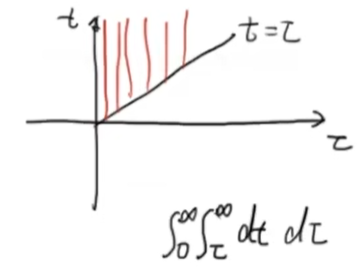 t
t=τ
τ
∫₀^∞ ∫_τ^∞ dt dτ